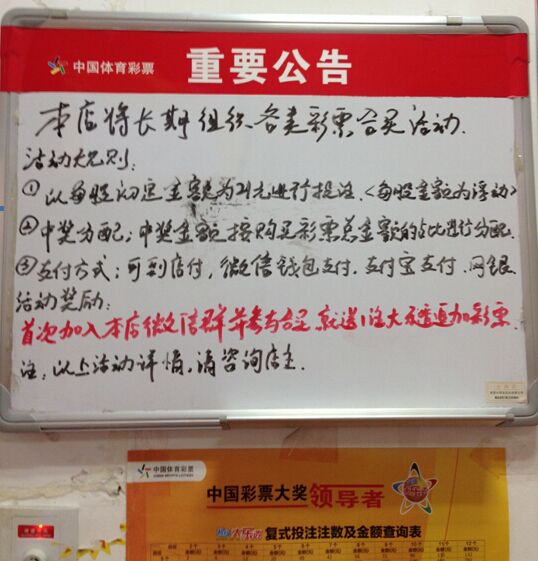 中国体育彩票
重要公告
本店将长期组织各类彩票合买活动.
活动规则:
①以每股固定金额为21元进行投注.<每股金额为浮动>
②中奖分配:中奖金额按购买彩票总金额的占比进行分配.
③支付方式:可到店付,微信钱包支付.支付宝支付.网银
活动奖励:
首次加入本店微信群并参与合买就送1注大乐透追加彩票.
注:以上活动详情,请咨询店主.
中国体育彩票
CHINA SPORTS LOTTERY
中国彩票大奖领导者
大乐透 复式投注注数及金额查询表